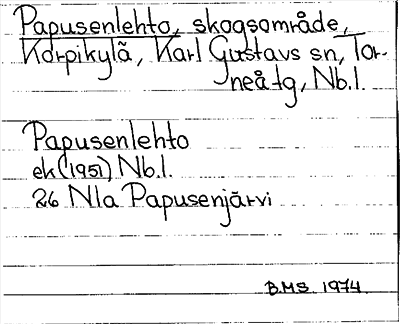 Papusenlehto, skogsområde,
Korpikylä, Karl Gustavs sn, Tor-
neå tg, Nb.l.
Papusenlehto
ek (1951) Nb.l.
26 Nla Papusenjärvi
B.M.S. 1974